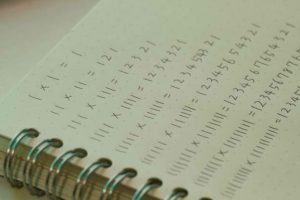 1 x 1 = 1
11 x 11 = 121
111 x 111 = 12321
1111 x 1111 = 1234321
11111 x 11111 = 123454321
111111 x 111111 = 12345654321
1111111 x 1111111 = 1234567654321
11111111 x 11111111 = 1234567876